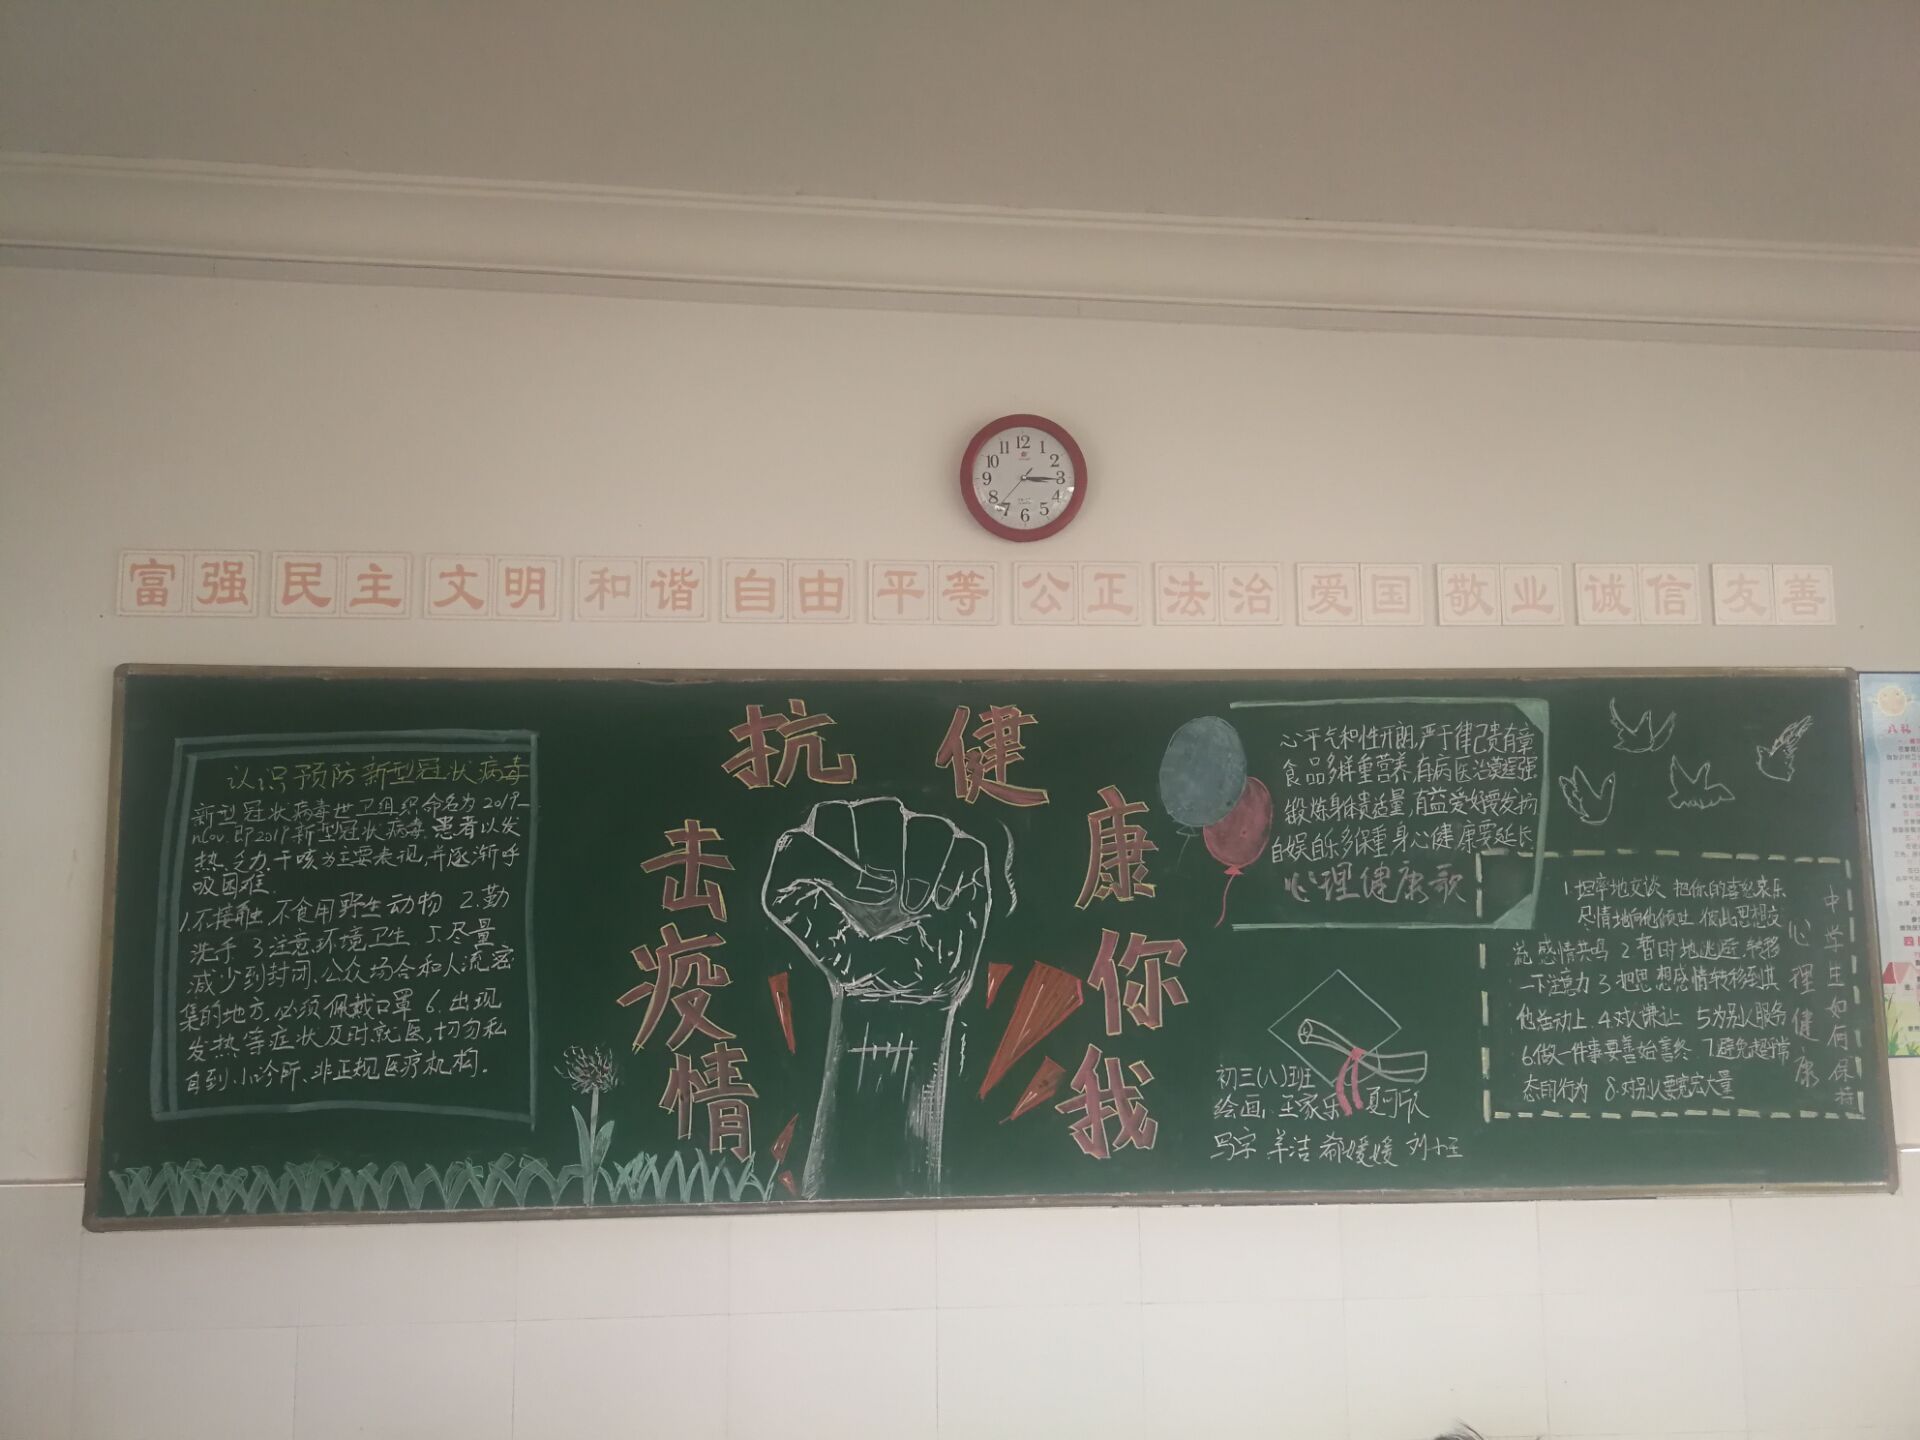 12
1
2
3
4
5
6
7
8
9
10
11
富强 民主 文明 和谐 自由 平等 公正 法治 爱国 敬业 诚信 友善
认识预防新型冠状病毒
新型冠状病毒世卫组织命名为2019-
nCov.即2019新型冠状病毒.患者以发
热.乏力.干咳为主要表现,并逐渐呼
吸困难.
1.不接触,不食用野生动物 2.勤
洗手 3.注意环境卫生 5.尽量
减少到封闭、公众场合和人流密
集的地方,必须佩戴口罩 6.出现
发热等症状及时就医,切勿私
自到小诊所、非正规医疗机构.
抗击疫情
健康你我
心平气和性开朗,严于律己贵有章
食品多样重营养,有病医治莫逞强
锻炼身体贵适量,有益爱好要发扬
自娱自乐多保重,身心健康要延长
心理健康歌
初三(八)班
绘画:王家乐 夏可欣
写字 羊洁 郗媛媛 刘
中学生如何保持
心理健康
1.坦率地交谈 把你的喜怒哀乐
尽情地向他倾吐 彼此思想交
流感情共鸣 2.暂时地逃避.转移
一下注意力 3.把思想感情转移到其
他活动上 4.对人谦让 5.为别人服务
6.做一件事要善始善终 7.避免超乎常
态的行为 8.对别人要宽宏大量
八礼